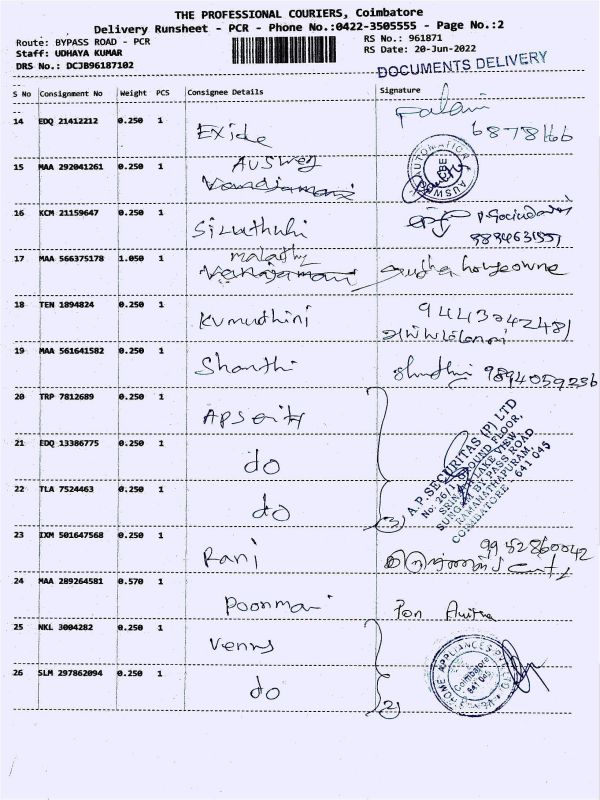 THE PROFESSIONAL COURIERS, Coimbatore
Delivery Runsheet - PCR - Phone No.:0422-3505555 - Page No.:2
Route: BYPASS ROAD - PCR RS No.: 961871
Staff: UDHAYA KUMAR RS Date: 20-Jun-2022
DRS No.: DCJB96187102 DOCUMENTS DELIVERY
S No Consignment No Weight PCS Consignee Details Signature
14 EDQ 21412212 0.250 1 Exide Palani
6878166
15 MAA 292041261 0.250 1 Ausweg AUTOMATION CBE AUSWEG
16 KCM 21159647 0.250 1
9894631557
17 MAA 566375178 1.050 1 malathy
18 TEN 1894824 0.250 1 Kumudhini 9443042481
19 MAA 561641582 0.250 1 Shanthi Shanthi 9894059236
20 TRP 7812689 0.250 1
21 EDQ 13386775 0.250 1 do
22 TLA 7524463 0.250 1 do (3)
A.P. SECURITAS (P) LTD
No: 26/1, GROUND FLOOR,
LAKE VIEW,
SUNGAM BY PASS ROAD
RAMANATHAPURAM,
COIMBATORE - 641 045
23 IXM 501647568 0.250 1 Rani 9952860042
24 MAA 289264581 0.570 1 Poonmani
25 NKL 3004282 0.250 1 Venus
26 SLM 297862094 0.250 1 do (2)
VENUS HOME APPLIANCES PVT
Coimbatore
641 045